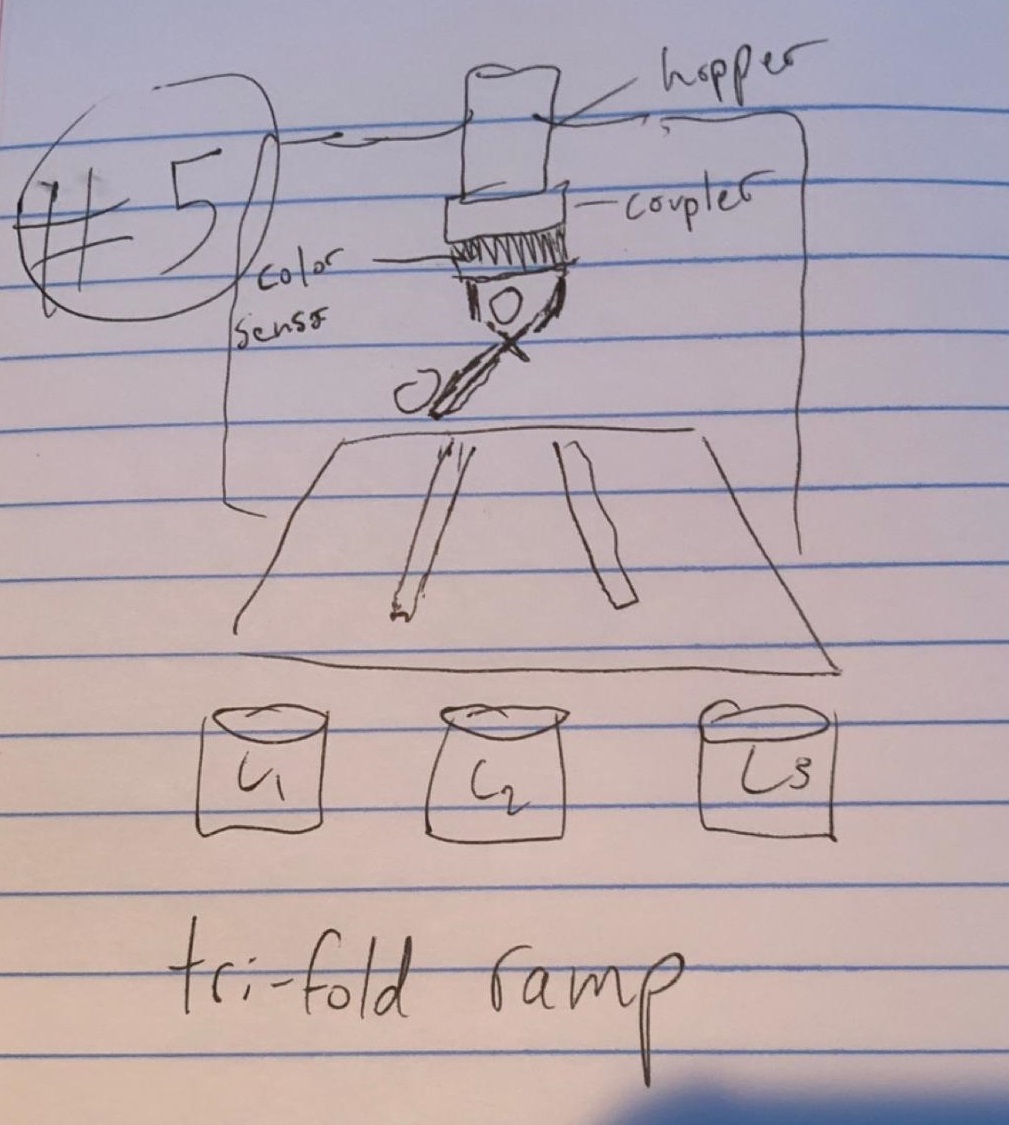 #5
hopper
coupler
color
sensor
C1
C2
C3
tri-fold ramp